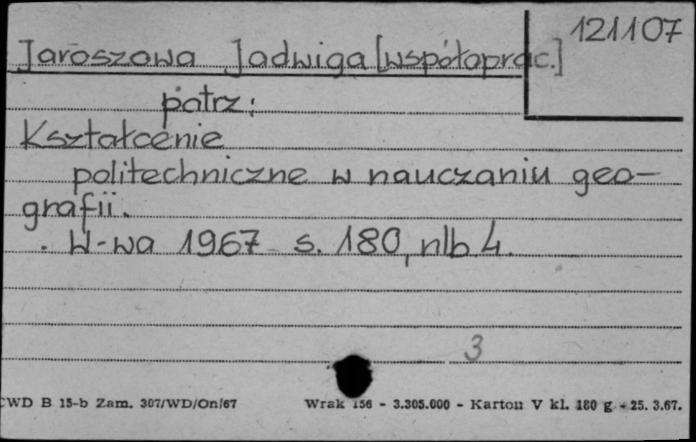 121107
Jaroszowa Jadwiga [współoprac.]
patrz:
Kształcenie
politechniczne w nauczaniu geo-
grafii.
. W-wa 1967 s. 180, nlb 4.
3
CWD B 15-b Zam. 307/WD/On/67 Wrak 156 - 3.305.000 - Karton V kl. 180 g - 25. 3.67.